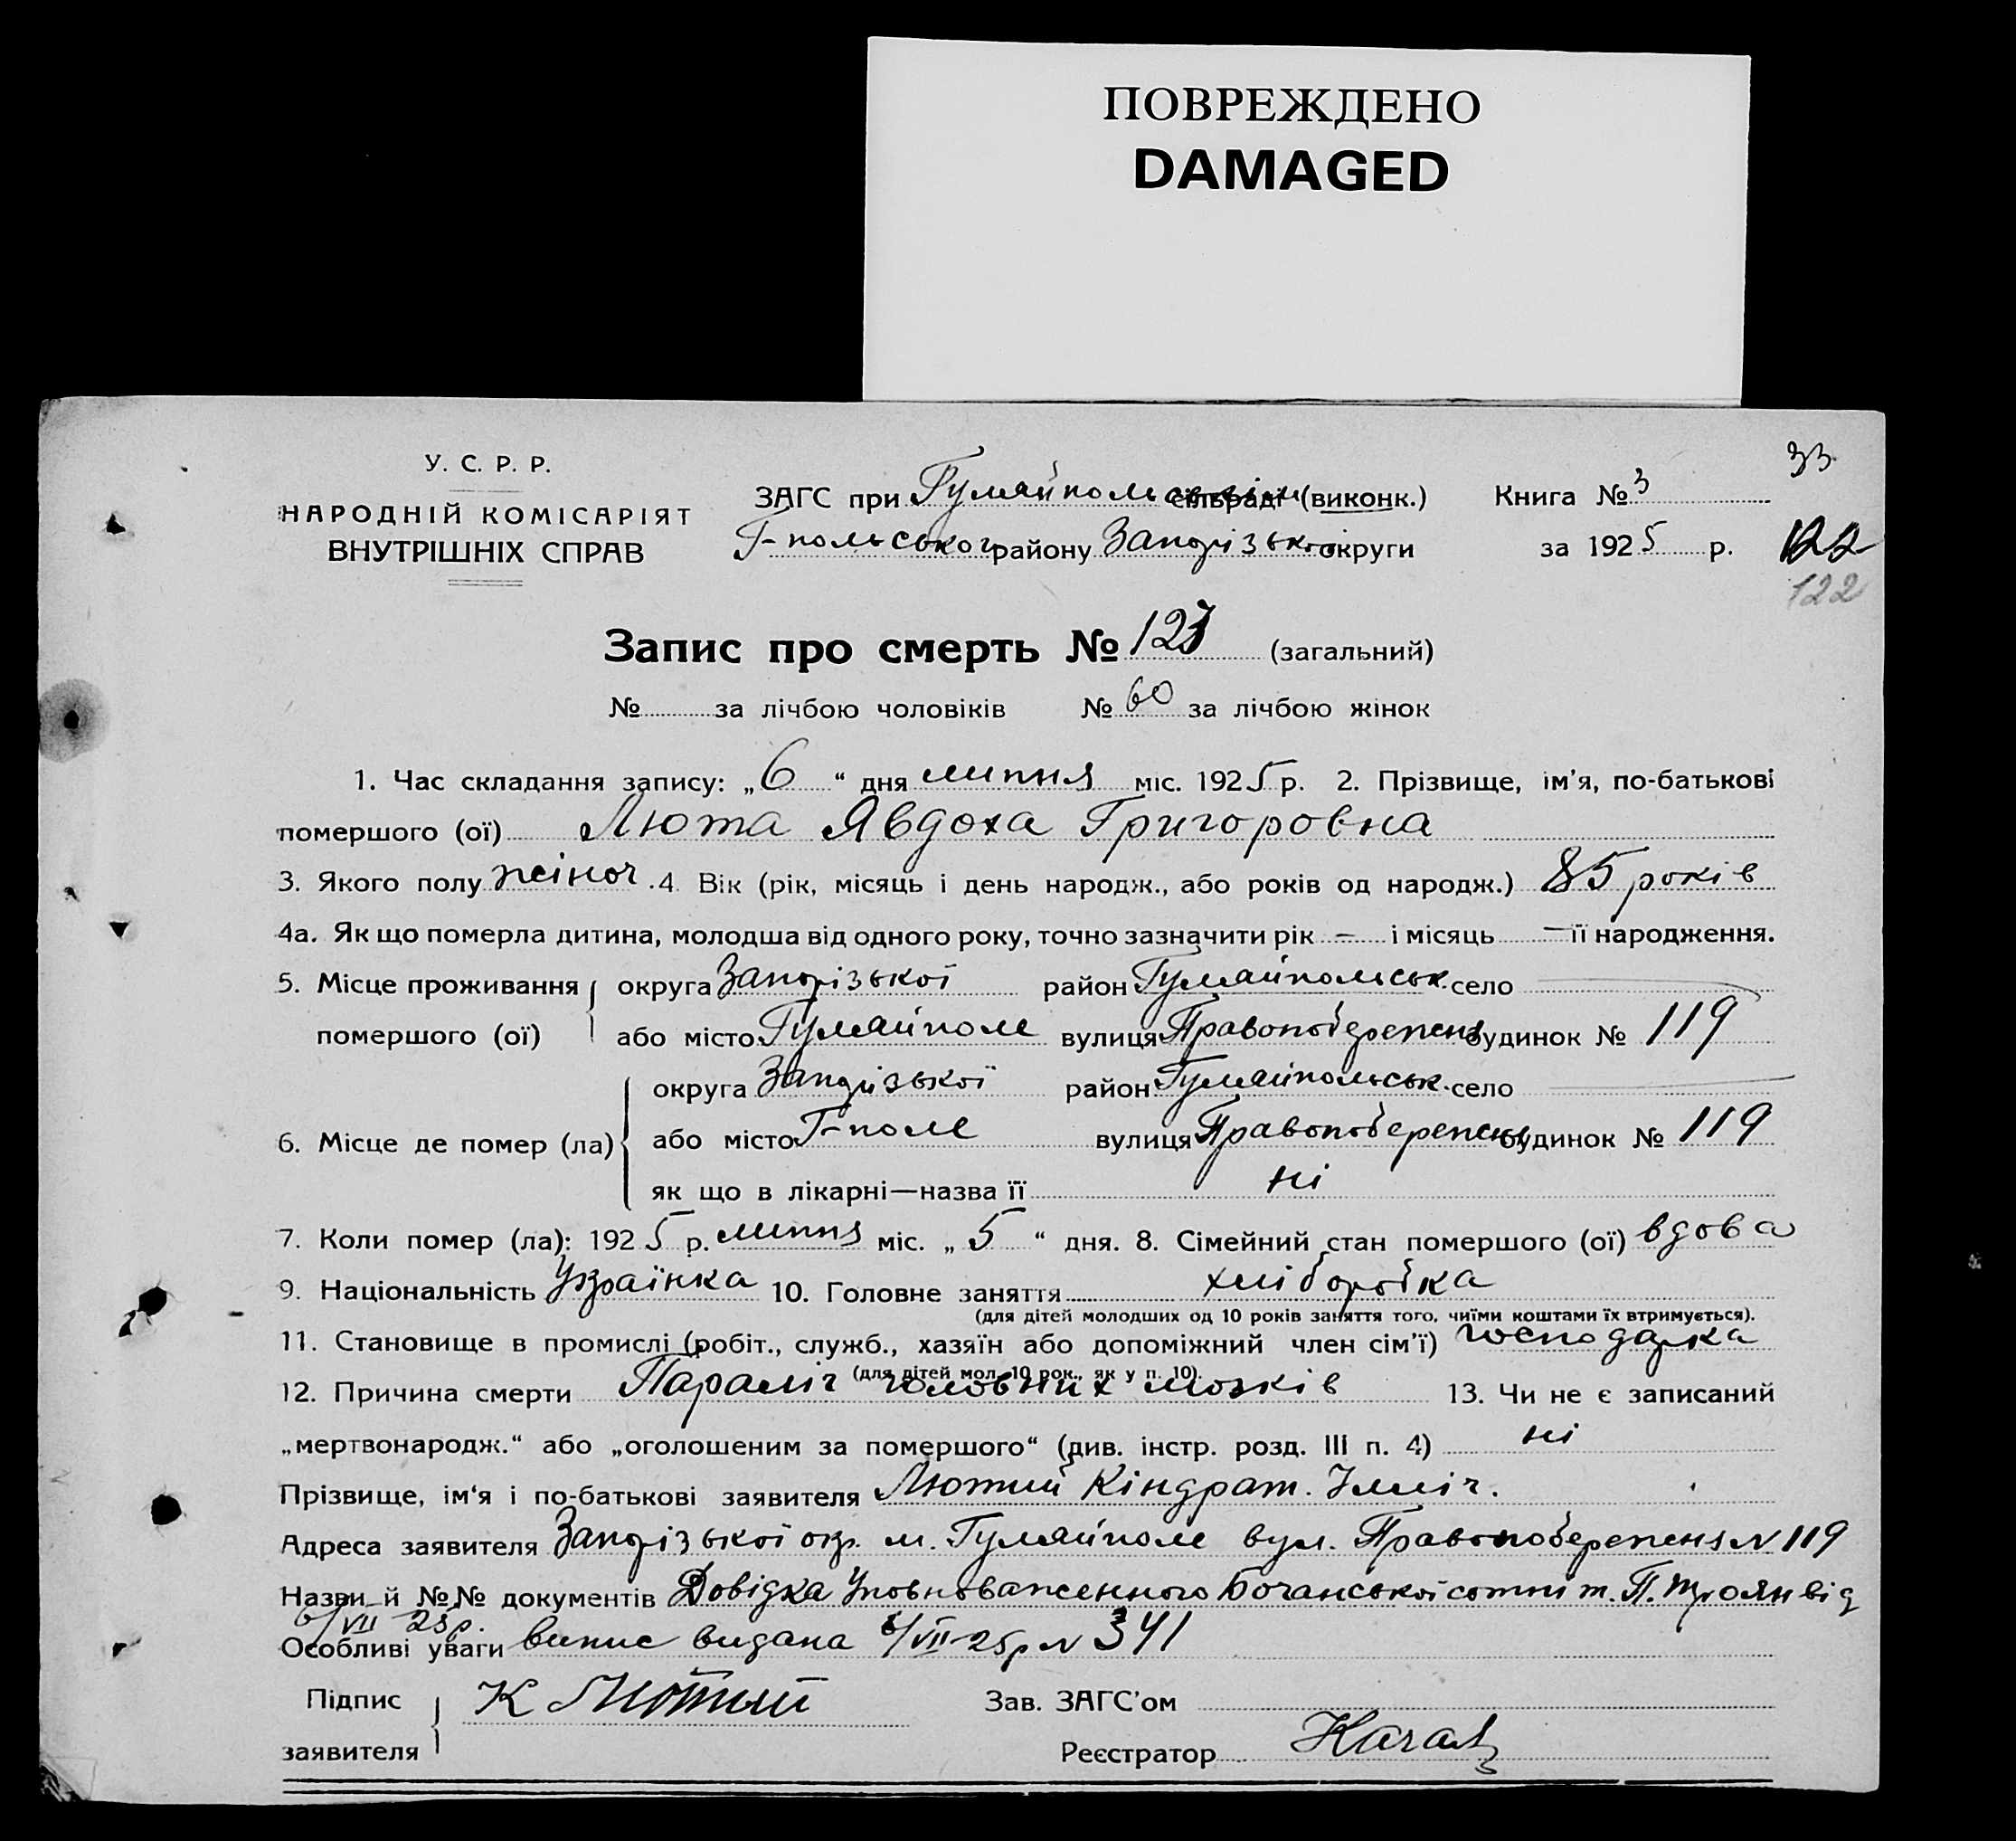 ПОВРЕЖДЕНО
DAMAGED
33
У. С. Р. Р.
НАРОДНІЙ КОМІСАРІЯТ
ВНУТРІШНІХ СПРАВ
ЗАГС при Гуляйпольськім сільраді (виконк.) Книга № 3
Г-польського району Запорізької округи за 1925 р. 122
122
Запис про смерть № 127 (загальний)
№ за лічбою чоловіків № 60 за лічбою жінок
1. Час складання запису: „6“ дня липня міс. 1925 р. 2. Прізвище, ім’я, по-батькові
помершого (ої) Люта Явдоха Григоровна
3. Якого полу жіноч. 4. Вік (рік, місяць і день народж., або років од народж.) 85 років
4а. Як що померла дитина, молодша від одного року, точно зазначити рік — і місяць — її народження.
5. Місце проживання округа Запорізької район Гуляйпольськ. село
помершого (ої) або місто Гуляйполе вулиця Правопобережня будинок № 119
округа Запорізької район Гуляйпольськ. село
6. Місце де помер (ла) або місто Г-поле вулиця Правопобережня будинок № 119
як що в лікарні—назва її ні
7. Коли помер (ла): 1925 р. липня міс. „5“ дня. 8. Сімейний стан помершого (ої) вдова
9. Національність Українка 10. Головне заняття хліборобка
(для дітей молодших од 10 років заняття того, чиїми коштами їх втримується).
11. Становище в промислі (робіт., служб., хазяїн або допоміжний член сім’ї) господарка
(для дітей мол. 10 рок., як у п. 10).
12. Причина смерти Параліч головних мозків 13. Чи не є записаний
„мертвонародж.“ або „оголошеним за помершого“ (див. інстр. розд. III п. 4) ні
Прізвище, ім‘я і по-батькові заявителя Лютий Кіндрат. Ілліч.
Адреса заявителя Запорізької окр. м. Гуляйполе вул. Правопобережня N 119
Назви й №№ документів Довідка Уповноваженного Бочанської сотні т. П. Троян від
6/VII 25р.
Особливі уваги випис видана 6/VII-25р N 341
Підпис К Лютий Зав. ЗАГС’ом
заявителя Реєстратор